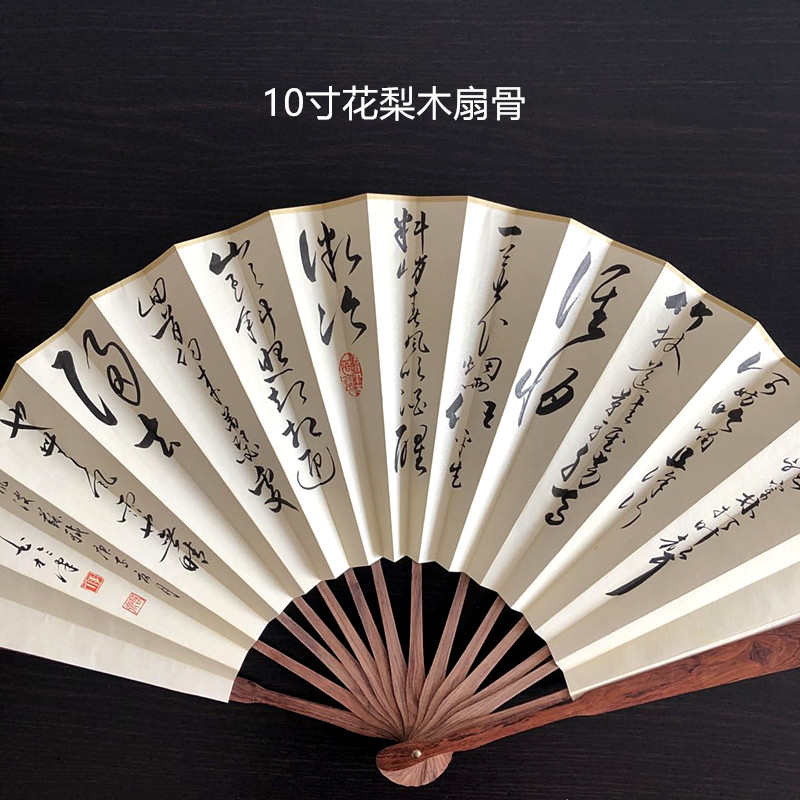 10寸花梨木扇骨
穿林打叶声
何妨吟啸且徐行
竹杖芒鞋轻胜马
谁怕
一蓑烟雨任平生
料峭春风吹酒醒
微冷
山头斜照却相迎
回首向来萧瑟处
归去
也无风雨也无晴